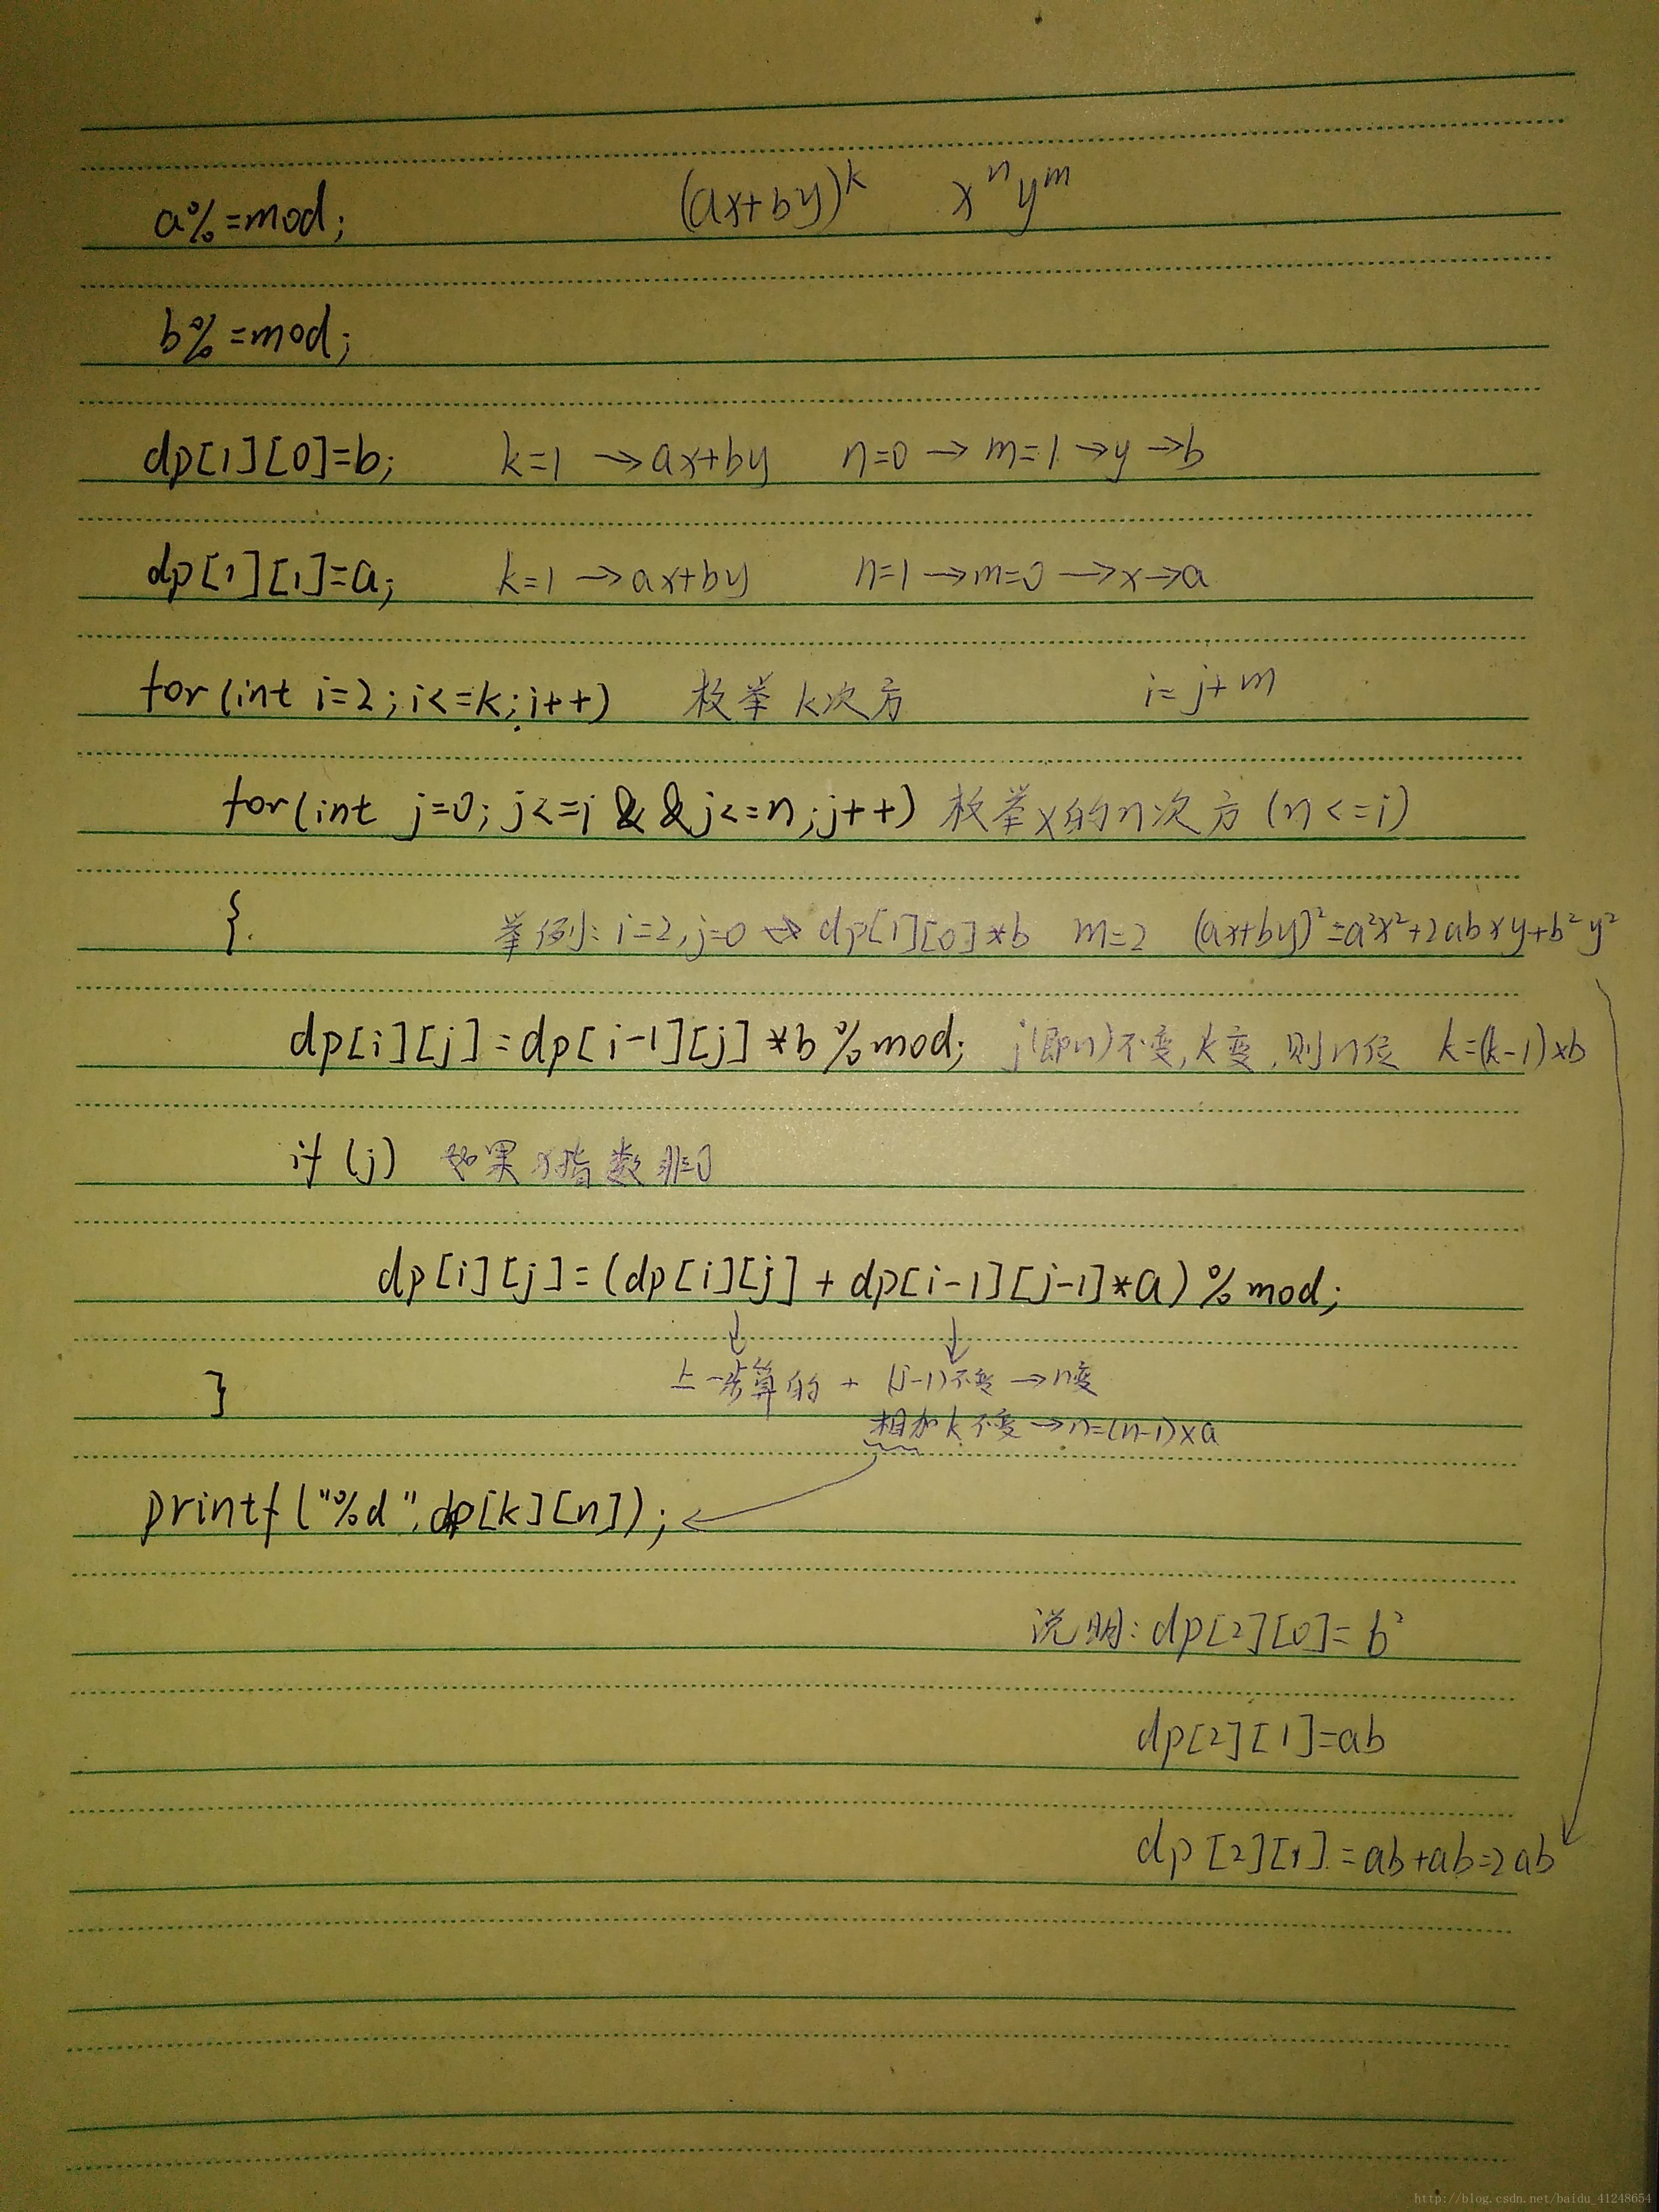 a%=mod; (ax+by)^k x^n y^m
b%=mod;
dp[1][0]=b; k=1 →ax+by n=0 → m=1 → y →b
dp[1][1]=a; k=1 →ax+by n=1 →m=0 →x→a
for(int i=2;i<=k;i++) 枚举 k次方 i=j+m
for(int j=0;j<=i&&j<=n;j++) 枚举x的n次方(n<=i)
{ 举例: i=2,j=0 ↔ dp[1][0]*b m=2 (ax+by)²=a²x²+2abxy+b²y²
dp[i][j]=dp[i-1][j]*b%mod; j(即n)不变,k变,则n位 k=(k-1)×b
if(j) 如果x指数非0
dp[i][j]=(dp[i][j]+dp[i-1][j-1]*a)%mod;
↓ ↓
} 上一步算的 + (j-1)不变→n变
相加k不变→n=(n-1)×a
printf("%d",dp[k][n]);
说明: dp[2][0]=b²
dp[2][1]=ab
dp[2][1]=ab+ab=2ab
http://blog.csdn.net/baidu_41248654